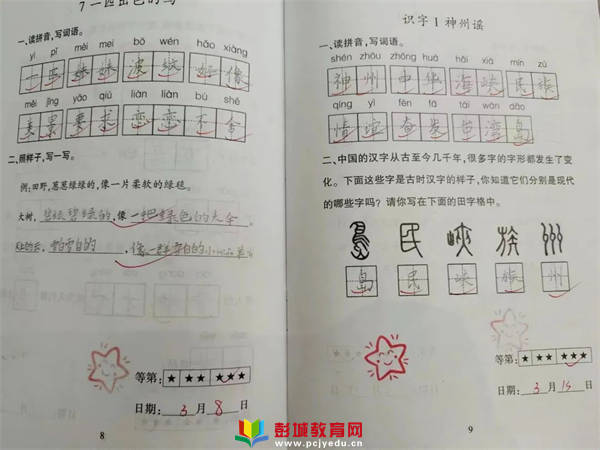 7 一匹出色的马
一、读拼音,写词语。
yì pǐ mèi mei bō wén hǎo xiàng
一匹 妹妹 波纹 好像
měi jǐng yāo qiú liàn liàn bù shě
美景 要求 恋恋不舍
二、照样子,写一写。
例:田野,葱葱绿绿的,像一片柔软的绿毯。
大树,碧绿碧绿的,像一把绿色的大伞
雪白雪白的,像一群雪白的小
等第:★ ★★ ★★★
日期: 3 月 8 日
8
识字 1 神州谣
一、读拼音,写词语。
shén zhōu zhōng huá hǎi xiá mín zú
神州 中华 海峡 民族
qíng yì fèn fā tái wān dǎo
情谊 奋发 台湾岛
二、中国的汉字从古至今几千年,很多字的字形都发生了变
化。下面这些字是古时汉字的样子,你知道它们分别是现代
的哪些字吗?请你写在下面的田字格中。
島 民 峽 族 州
岛 民 峡 族 州
等第:★ ★★ ★★★
日期: 3 月 14 日
9
彭城教育网
www.pcjyedu.cn